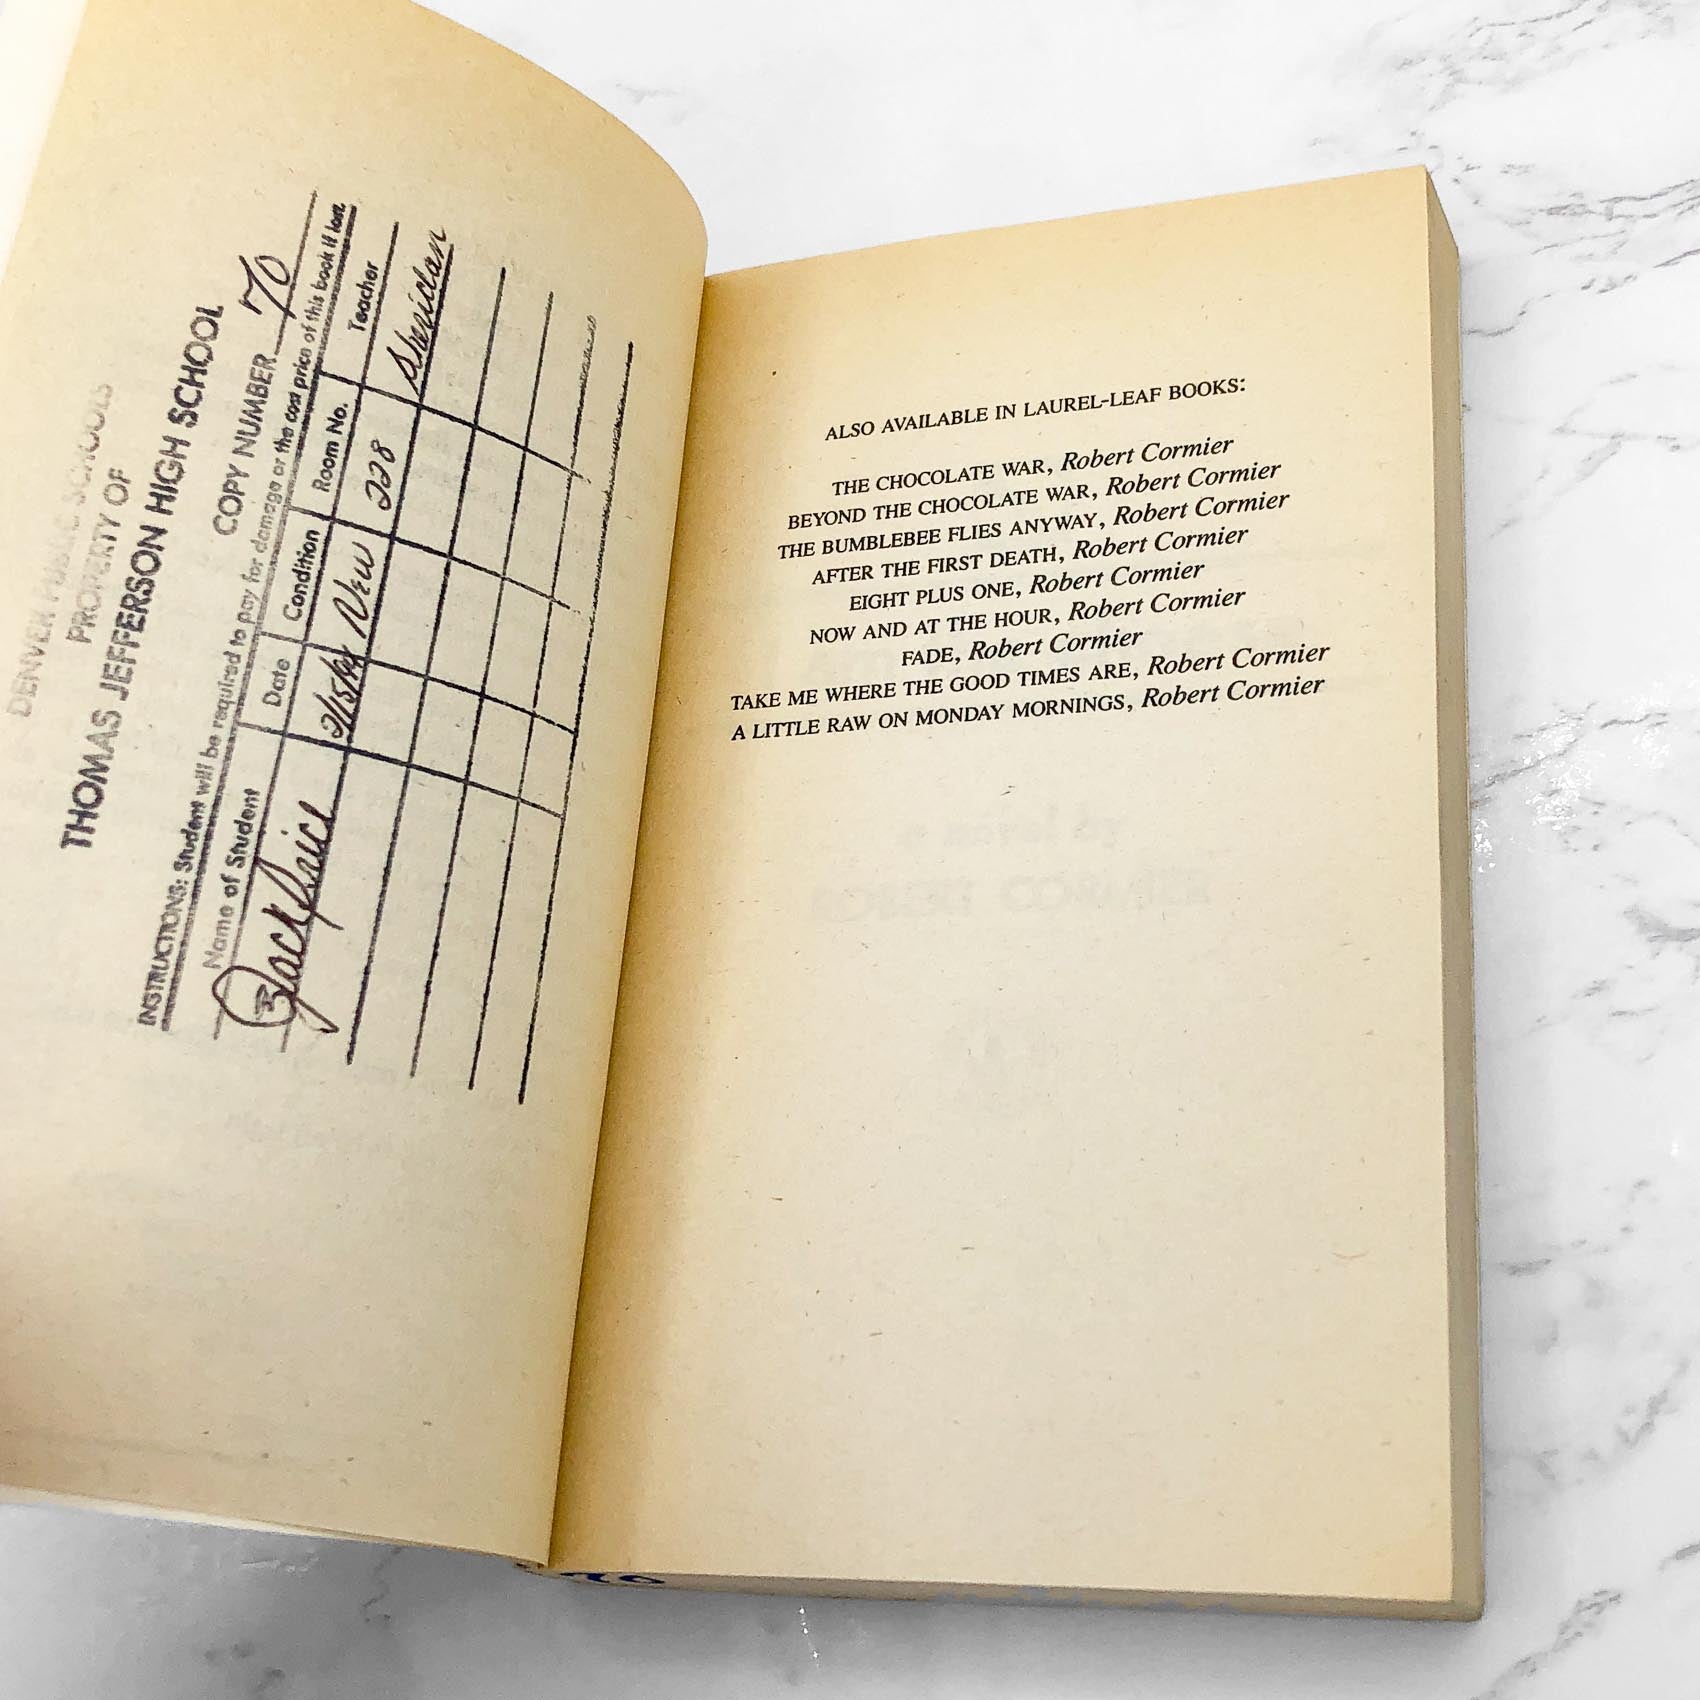 DENVER PUBLIC SCHOOLS
PROPERTY OF
THOMAS JEFFERSON HIGH SCHOOL
COPY NUMBER 70
INSTRUCTIONS: Student will be required to pay for damage or the cost price of this book if lost.
Name of Student Date Condition Room No. Teacher
New 228 Sheridan
ALSO AVAILABLE IN LAUREL-LEAF BOOKS:
THE CHOCOLATE WAR, Robert Cormier
BEYOND THE CHOCOLATE WAR, Robert Cormier
THE BUMBLEBEE FLIES ANYWAY, Robert Cormier
AFTER THE FIRST DEATH, Robert Cormier
EIGHT PLUS ONE, Robert Cormier
NOW AND AT THE HOUR, Robert Cormier
FADE, Robert Cormier
TAKE ME WHERE THE GOOD TIMES ARE, Robert Cormier
A LITTLE RAW ON MONDAY MORNINGS, Robert Cormier